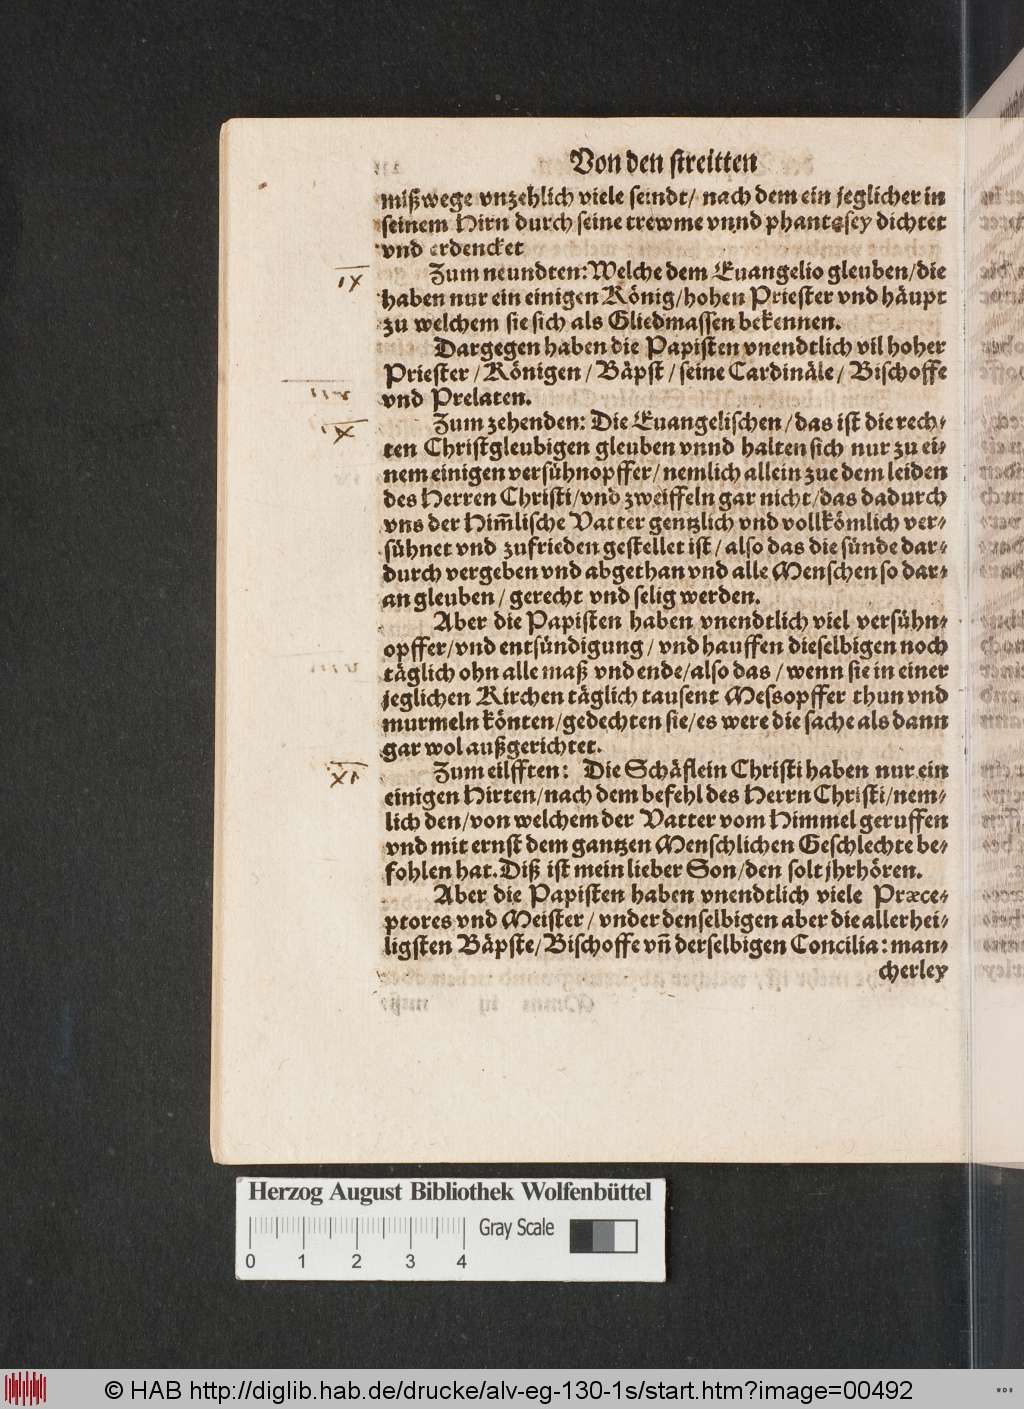 Von den streitten
mißwege vnzehlich viele seindt/ nach dem ein jeglicher in
seinem Hirn durch seine trewme vnnd phantasey dichtet
vnd erdencket
IX
Zum neundten: Welche dem Euangelio gleuben/die
haben nur ein einigen König/hohen Priester vnd häupt
zu welchem sie sich als Gliedmassen bekennen.
Dargegen haben die Papisten vnendtlich vil hoher
Priester / Königen / Bäpst / seine Cardinäle / Bischoffe
vnd Prelaten.
X
Zum zehenden: Die Euangelischen / das ist die rech-
ten Christgleubigen gleuben vnnd halten sich nur zu ei-
nem einigen versühnopffer / nemlich allein zue dem leiden
des Herren Christi/vnd zweiffeln gar nicht/das dadurch
vns der Him̃lische Vatter gentzlich vnd vollkömlich ver-
sühnet vnd zufrieden gestellet ist / also das die sünde dar-
durch vergeben vnd abgethan vnd alle Menschen so dar-
an gleuben / gerecht vnd selig werden.
Aber die Papisten haben vnendtlich viel versühn-
opffer/vnd entsündigung / vnd hauffen dieselbigen noch
täglich ohn alle maß vnd ende/also das / wenn sie in einer
jeglichen Kirchen täglich tausent Messopffer thun vnd
murmeln könten/gedechten sie/es were die sache als dann
gar wol außgerichtet.
XI
Zum eilfften: Die Schäflein Christi haben nur ein
einigen Hirten/nach dem befehl des Herrn Christi/nem-
lich den/von welchem der Vatter vom Himmel geruffen
vnd mit ernst dem gantzen Menschlichen Geschlechte be-
fohlen hat. Diß ist mein lieber Son/den solt jhr hören.
Aber die Papisten haben vnendtlich viele Præce-
ptores vnd Meister / vnder denselbigen aber die allerhei-
ligsten Bäpste/Bischoffe vñ derselbigen Concilia: man-
cherley
Herzog August Bibliothek Wolfenbüttel
Gray Scale
0 1 2 3 4
© HAB http://diglib.hab.de/drucke/alv-eg-130-1s/start.htm?image=00492